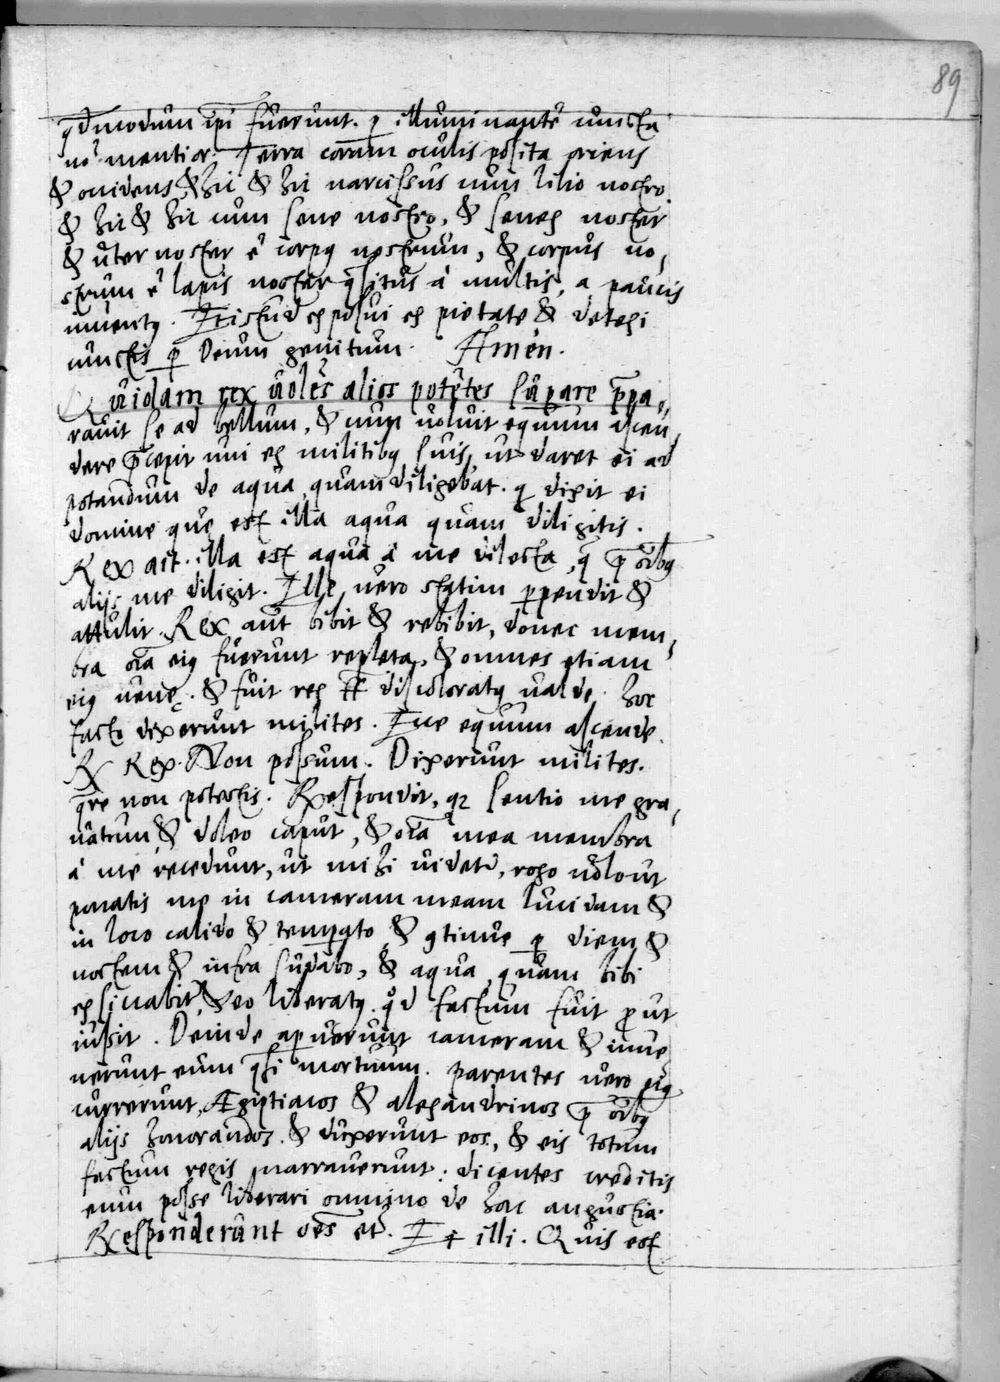 89
qdmodum ipi fuerunt. p illuminantē cuncta
nō mentior. Terra coram oculis posita oriens
& occidens & hic & hic narcissus cum lilio nostro
& hic & hic cum sene nostro, & senex noster
& uter noster ē corpus nostrum, & corpus no,
strum ē lapis noster qsitus á multis, a paucis
inuentus. Istud exposui ex pietate & detexi
cunctis p Deum genitum. Amen.
Quidam rex uolēs alios potētes supare ppa,
rauit se ad bellum, & cum uoluit equum ascen
dere pcepit uni ex militibus suis, ut daret ei ad
potandum de aqua, quam diligebat. q dixit ei
domine que est illa aqua quam diligitis.
Rex ait. illa est aqua á me dilecta, q p oībus
alijs me diligit. Ille vero statim ppendit &
attulit. Rex aut bibit & rebibit, donec mem,
bra oīa eius fuerunt repleta, & omnes etiam
eius uenę. & fuit rex discoloratus valde. hoc
facto dixerunt milites. Ecce equum ascende.
R Rex. Non possum. Dixerunt milites.
qre non potestis. Respondit, qz sentio me gra,
uatum & doleo caput, & oīa mea membra
á me recedunt, ut mihi uidetr, rogo uos ut
ponatis me in cameram meam lucidam &
in loco calido & tempato & 9tinue p diem &
noctem & infra sudabo, & aqua, quam bibi
exsiccabit & ero liberatus. qd factum fuit prout
iussit. Deinde aperuerunt cameram & inue
nerunt eum qsi mortuum. parentes uero eius
currerunt, Ægiptiacos & alexandrinos p oībus
alijs honorandos. & duxerunt eos, & eis totum
factum regis narrauerunt: dicentes creditis
eum posse liberari omnino de hac angustia.
Responderunt oēs et. Et illi. Quis est